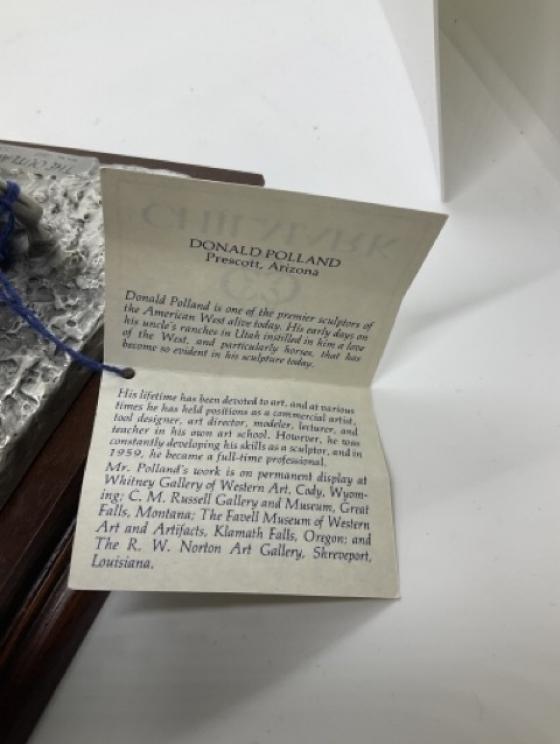 THE OUTLAW
CHILMARK
DONALD POLLAND
Prescott, Arizona
Donald Polland is one of the premier sculptors of
the American West alive today. His early days on
his uncle's ranches in Utah instilled in him a love
of the West, and particularly horses, that has
become so evident in his sculpture today.
His lifetime has been devoted to art, and at various
times he has held positions as a commercial artist,
tool designer, art director, modeler, lecturer, and
teacher in his own art school. However, he was
constantly developing his skills as a sculptor, and in
1959, he became a full-time professional.
Mr. Polland's work is on permanent display at
Whitney Gallery of Western Art, Cody, Wyom-
ing; C. M. Russell Gallery and Museum, Great
Falls, Montana; The Favell Museum of Western
Art and Artifacts, Klamath Falls, Oregon; and
The R. W. Norton Art Gallery, Shreveport,
Louisiana.